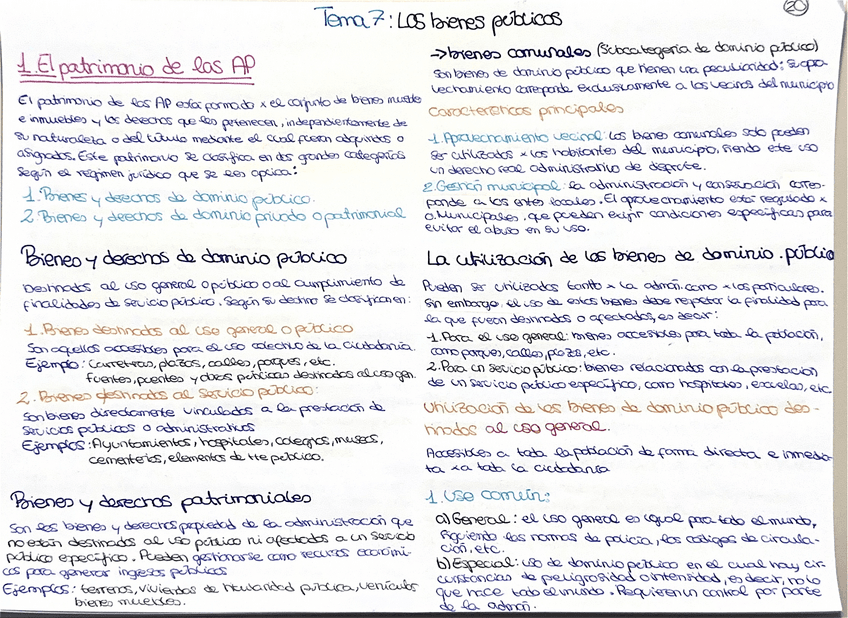 20
Tema 7: Los bienes públicos
1. El patrimonio de las AP
El patrimonio de las AP está formado x el conjunto de bienes muebles
e inmuebles y los derechos que les pertenecen, independientemente de
su naturaleza o del título mediante el cual fueron adquiridos o
asignados. Este patrimonio se clasifica en dos grandes categorías
según el régimen jurídico que se les aplica:
1. Bienes y derechos de dominio público.
2. Bienes y derechos de dominio privado o patrimonial
Bienes y derechos de dominio público
Destinados al uso general o público o al cumplimiento de
finalidades de servicio público. Según su destino se clasifican en:
1. Bienes destinados al uso general o público
Son aquellos accesibles para el uso colectivo de la ciudadanía.
Ejemplo: Carreteras, plazas, calles, parques, etc.
fuentes, puentes y obras públicas destinadas al uso gen.
2. Bienes destinados al servicio público:
Son bienes directamente vinculados a la prestación de
servicios públicos o administrativos
Ejemplos: Ayuntamientos, hospitales, colegios, museos,
cementerios, elementos de tte público.
Bienes y derechos patrimoniales
Son los bienes y derechos propiedad de la administración que
no están destinados al uso público ni afectados a un servicio
público específico. Pueden gestionarse como recursos económi-
cos para generar ingresos públicos
Ejemplos: terrenos, viviendas de titularidad pública, vehículos
bienes muebles.
→ bienes comunales (Subcategoría de dominio público)
Son bienes de dominio público que tienen una peculiaridad: su apro
vechamiento corresponde exclusivamente a los vecinos del municipio
Características principales
1. Aprovechamiento vecinal: los bienes comunales solo pueden
ser utilizados x los habitantes del municipio, siendo este uso
un derecho real administrativo de disfrute.
2. Gestión municipal: la administración y conservación corres-
ponde a los entes locales. El aprovechamiento está regulado x
o. Municipales, que pueden exigir condiciones específicas para
evitar el abuso en su uso.
La utilización de los bienes de dominio público
Pueden ser utilizados tanto x la admón. como x los particulares.
Sin embargo, el uso de estos bienes debe respetar la finalidad para
la que fueron destinados o afectados, es decir:
1. Para el uso general: bienes accesibles para toda la población,
como parques, calles, plazas, etc.
2. Para un servicio público: bienes relacionados con la prestación
de un servicio público específico, como hospitales, escuelas, etc
Utilización de los bienes de dominio público des-
tinados al uso general.
Accesibles a toda la población de forma directa e inmedia-
ta x a toda la ciudadanía
1. Uso común:
a) General: el uso general es igual para todo el mundo,
siguiendo las normas de policía, los códigos de circula-
ción, etc.
b) Especial: uso de dominio público en el cual hay cir-
cunstancias de peligrosidad o intensidad, es decir, no lo
que hace todo el mundo. Requieren un control por parte
de la admón.